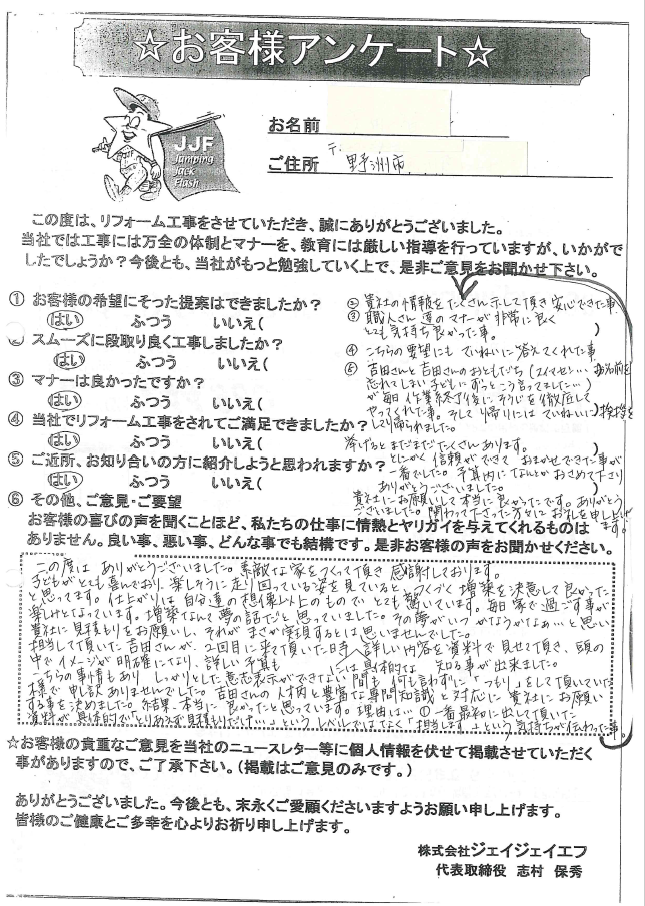 ☆お客様アンケート☆
JJF
Jumping
Jack
Flash
お名前
ご住所 〒 野洲市
この度は、リフォーム工事をさせていただき、誠にありがとうございました。
当社では工事には万全の体制とマナーを、教育には厳しい指導を行っていますが、いかがで
したでしょうか？今後とも、当社がもっと勉強していく上で、是非ご意見をお聞かせ下さい。
① お客様の希望にそった提案はできましたか？
はい ふつう いいえ(
スムーズに段取り良く工事しましたか？
はい ふつう いいえ(
③ マナーは良かったですか？
はい ふつう いいえ(
④ 当社でリフォーム工事をされてご満足できましたか？
はい ふつう いいえ(
⑤ ご近所、お知り合いの方に紹介しようと思われますか？
はい ふつう いいえ(
② 貴社の情報をたくさん示して頂き安心できた事
③ 職人さん達のマナーが非常に良く
とても気持ち良かった事。 )
④ こちらの要望にもていねいに答えてくれた事
⑤ 吉田さんと吉田さんのおともだち(スイマセン… お名前を
忘れてしまい子どもにずっとこう言ってました…)
が毎日作業終了後にそうじを徹底して
やってくれた事。そして帰りにはていねいに挨拶を
して帰られました。
挙げるとまだまだたくさんあります。 )
とにかく信頼ができておまかせできた事が
一番でした。予算内になんとかおさめて下さり
ありがとうございました。
貴社にお願いして本当に良かったです。ありがとう
ございました。関わって下さった方々にお礼を申し上げ
ます。
⑥ その他、ご意見・ご要望
お客様の喜びの声を聞くことほど、私たちの仕事に情熱とヤリガイを与えてくれるものは
ありません。良い事、悪い事、どんな事でも結構です。是非お客様の声をお聞かせください。
この度は ありがとうございました。素敵な家をつくって頂き 感謝しております。
子どもがとても喜んでおり、楽しそうに走り回っている姿を見ていると、つくづく増築を決意して良かった
と思ってます。仕上がりは自分達の想像以上のもので とても驚いています。毎日家で過ごす事が
楽しみとなっています。増築なんて夢の話だと思っていました。その夢がいつかかなうかなぁ…と思い
貴社に見積もりをお願いし、それがまさか実現するとは思いませんでした。
担当して頂いた吉田さんが、2回目に来て頂いた日時、詳しい内容を資料で見せて頂き、頭の
中でイメージが明確になり、詳しい予算も には具体的な 知る事が出来ました。
こちらの事情もあり しっかりとした意志表示ができない間も 何も言わずに「つもり」をして頂いていた
様で申し訳ありませんでした。吉田さんの人柄と豊富な専門知識と対応に貴社にお願い
する事を決めました。結果、本当に良かったと思っています。理由は… ① 一番最初に出して頂いた
資料が具体的で"とりあえず見積もりだけ…"というレベルではなく「担当します」という気持ちが伝わった事。
☆お客様の貴重なご意見を当社のニュースレター等に個人情報を伏せて掲載させていただく
事がありますので、ご了承下さい。(掲載はご意見のみです。)
ありがとうございました。今後とも、末永くご愛顧くださいますようお願い申し上げます。
皆様のご健康とご多幸を心よりお祈り申し上げます。
株式会社ジェイジェイエフ
代表取締役 志村 保秀